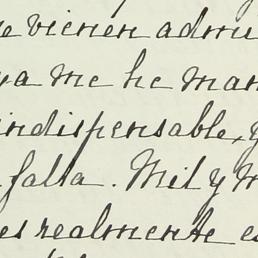 e vienen admi
ya me he man
indispensable, y
falta. Mil y m
es realmente e